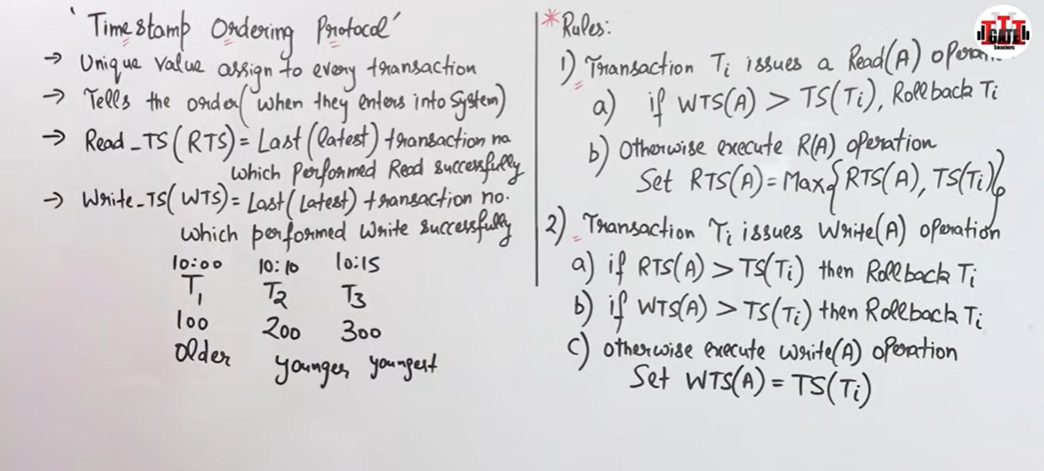 'Timestamp Ordering Protocol'
→ Unique value assign to every transaction
→ Tells the order (when they enters into System)
→ Read_TS(RTS) = Last (latest) transaction no
which performed Read successfully
→ Write_TS(WTS) = Last (Latest) transaction no.
which performed Write successfully
10:00 10:10 10:15
T1 T2 T3
100 200 300
Older younger youngest
* Rules:
1) Transaction Ti issues a Read(A) operation
a) if WTS(A) > TS(Ti), Rollback Ti
b) Otherwise execute R(A) operation
Set RTS(A) = Max{RTS(A), TS(Ti)}
2) Transaction Ti issues Write(A) operation
a) if RTS(A) > TS(Ti) then Rollback Ti
b) if WTS(A) > TS(Ti) then Rollback Ti
c) otherwise execute write(A) operation
Set WTS(A) = TS(Ti)
GATE
Smashers